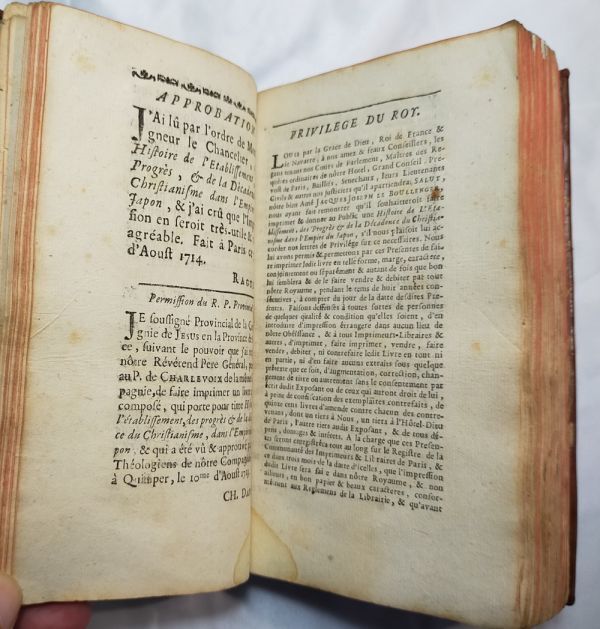 APPROBATION
J'Ai lû par l'ordre de Mon
gneur le Chancelier,
Histoire de l'Etablissement
Progrès, & de la Décaden
Christianisme dans l'Emp
Japon, & j'ai crû que l'Im
sion en seroit très-utile &
agréable. Fait à Paris
d'Aoust 1714.
RAG
Permission du R. P. Provincial
JE soussigné Provincial de la
gnie de JESUS en la Province de
ce, suivant le pouvoir que j'ai
nôtre Révérend Pere Général,
au P. de CHARLEVOIX de la même
pagnie, de faire imprimer un
composé, qui porte pour titre Hi
l'établissement, des progrès & de la
ce du Christianisme, dans l'Empire
pon, & qui a été vû & approuvé
Théologiens de nôtre Compagnie
à Quimper, le 10me d'Aoust
CH. DA
PRIVILEGE DU ROY.
LOUIS par la Grace de Dieu, Roi de France &
de Navarre; à nos amez & feaux Conseillers, les
Gens tenant nos Cours de Parlement, Maîtres des Re-
quêtes ordinaires de nôtre Hôtel, Grand Conseil, Pre-
vost de Paris, Baillifs, Senechaux, leurs Lieutenans
Civils & autres nos justiciers qu'il appartiendra; SALUT,
nôtre bien Amé JACQUES JOSEPH LE BOULLENGER
nous ayant fait remontrer qu'il souhaiteroit faire
imprimer & donner au Public une Histoire de L'Eta-
blissement, des Progrès & de la Décadence du Christia-
nisme dans l'Empire du Japon, s'il nous plaisoit lui ac-
corder nos lettres de Privilége sur ce necessaires. Nous
lui avons permis & permettons par ces Presentes de fai-
re imprimer ledit livre en telle forme, marge, caractere,
conjointement ou séparément & autant de fois que bon
lui semblera & de le faire vendre & debiter par tout
nôtre Royaume, pendant le tems de huit années con-
secutives, à compter du jour de la date desdites Pre-
sentes. Faisons défenses à toutes sortes de personnes
de quelques qualité & condition qu'elles soient, d'en
introduire d'impression étrangere dans aucun lieu de
nôtre Obéïssance, & à tous Imprimeurs-Libraires &
autres, d'imprimer, faire imprimer, vendre, faire
vendre, debiter, ni contrefaire ledit Livre en tout ni
en partie, ni d'en faire aucuns extraits sous quelque
pretexte que ce soit, d'augmentation, correction, chan-
gement de titre ou autrement sans le consentement par
écrit dudit Exposant ou de ceux qui auront droit de lui,
à peine de confiscation des exemplaires contrefaits, de
quinze cens livres d'amende contre chacun des contre-
venans, dont un tiers à Nous, un tiers à l'Hôtel-Dieu
de Paris, l'autre tiers audit Exposant, & de tous dé-
pens, domages & interêts. A la charge que ces Presen-
tes seront enregistrées tout au long sur le Registre de la
Communauté des Imprimeurs & Libraires de Paris, &
ce dans trois mois de la datte d'icelles, que l'impression
dudit Livre sera faite dans nôtre Royaume, & non
ailleurs, en bon papier & beaux caracteres, confor-
mément aux Reglemens de la Librairie, & qu'avant